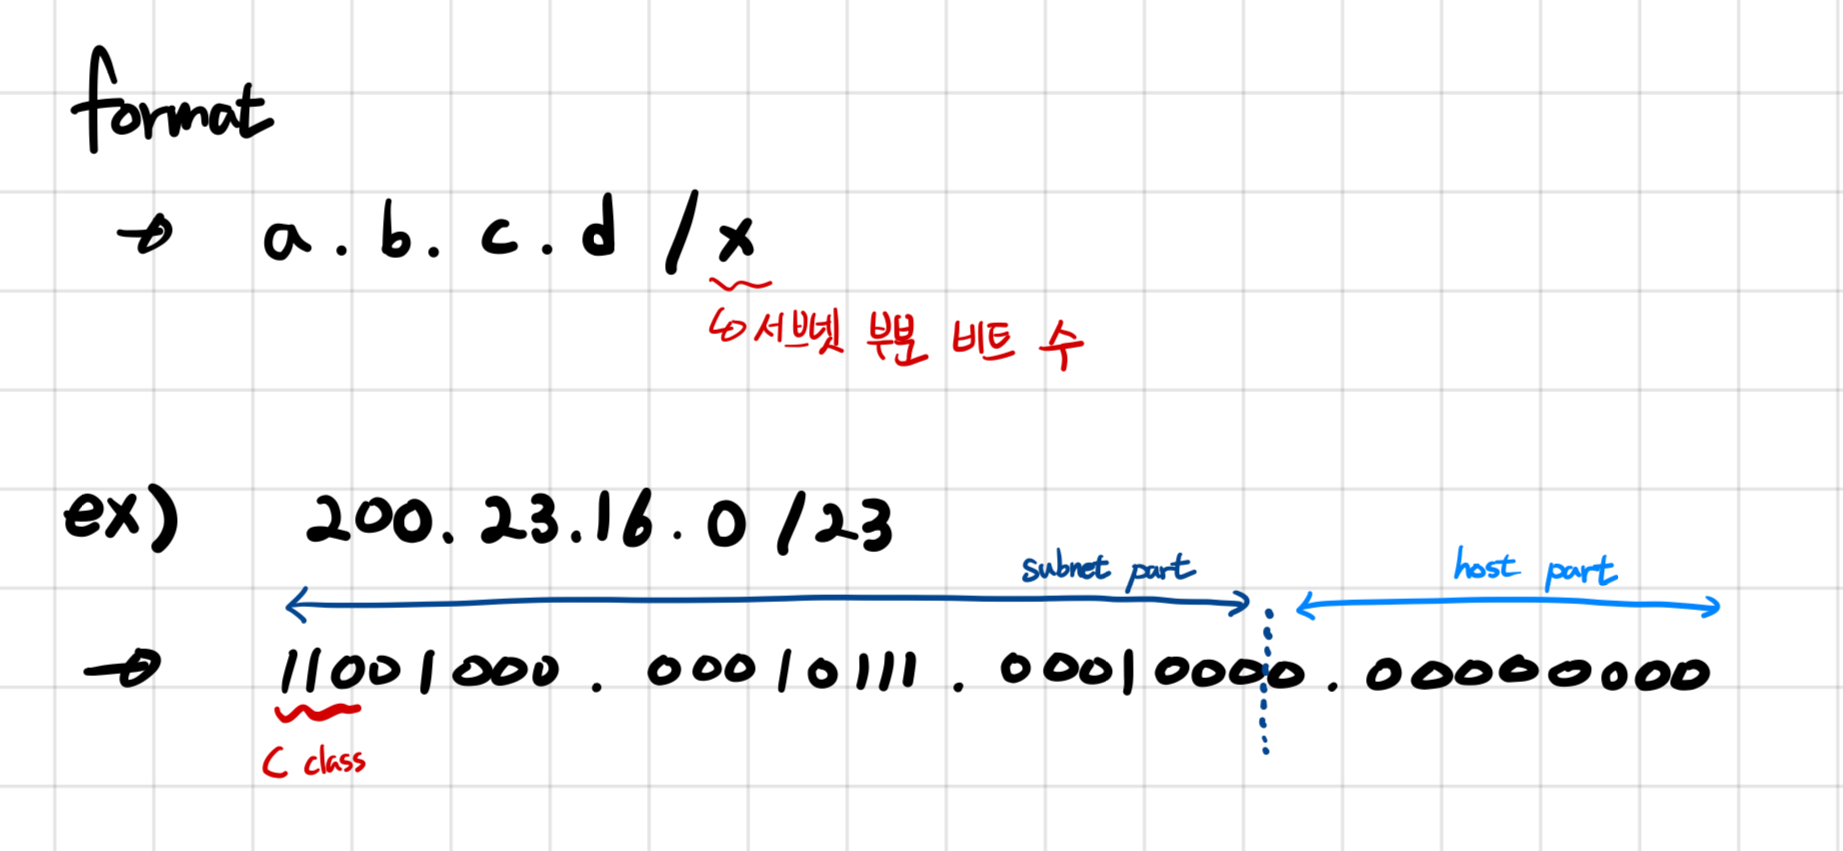 format
→ a.b.c.d/x
↳ 서브넷 부분 비트 수
ex) 200.23.16.0/23
subnet part host part
→ 11001000.00010111.00010000.00000000
C class